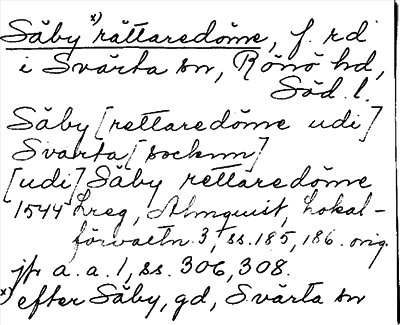 Såby *) rättaredöme, f. rdi
i Svärta sn, Rönö hd,
Söd. l.
Såby [rettaredöme udi]
Svarta [socknn]
[udi] Såby rettaredöme
1544 Lreg, Almquist, Lokal-
förvaltn. 3, ss. 185, 186. orig.
jfr a. a. 1, ss. 306, 308.
*) efter Såby, gd, Svärta sn